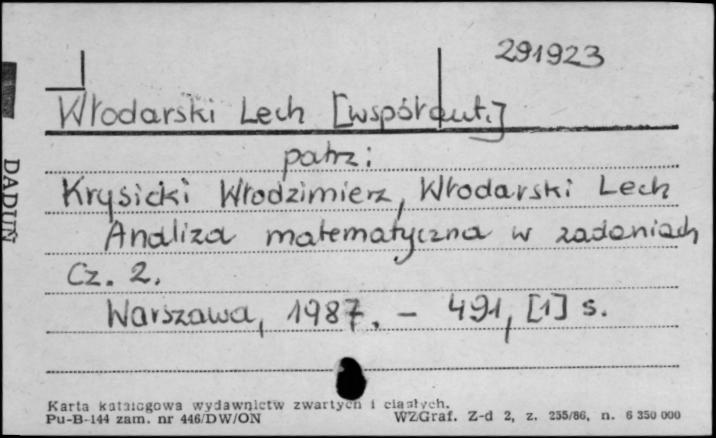 291923
Włodarski Lech [współaut.]
patrz:
Krysicki Włodzimierz, Włodarski Lech
Analiza matematyczna w zadaniach
Cz. 2.
Warszawa, 1987. - 491, [1] s.
DADUŃ
Karta katalogowa wydawnictw zwartych i ciągłych.
Pu-B-144 zam. nr 446/DW/ON WZGraf. Z-d 2, z. 255/86, n. 6 350 000